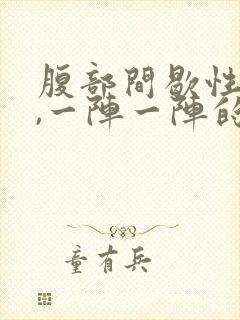 腹部間歇性
,一陣一陣的
童有兵